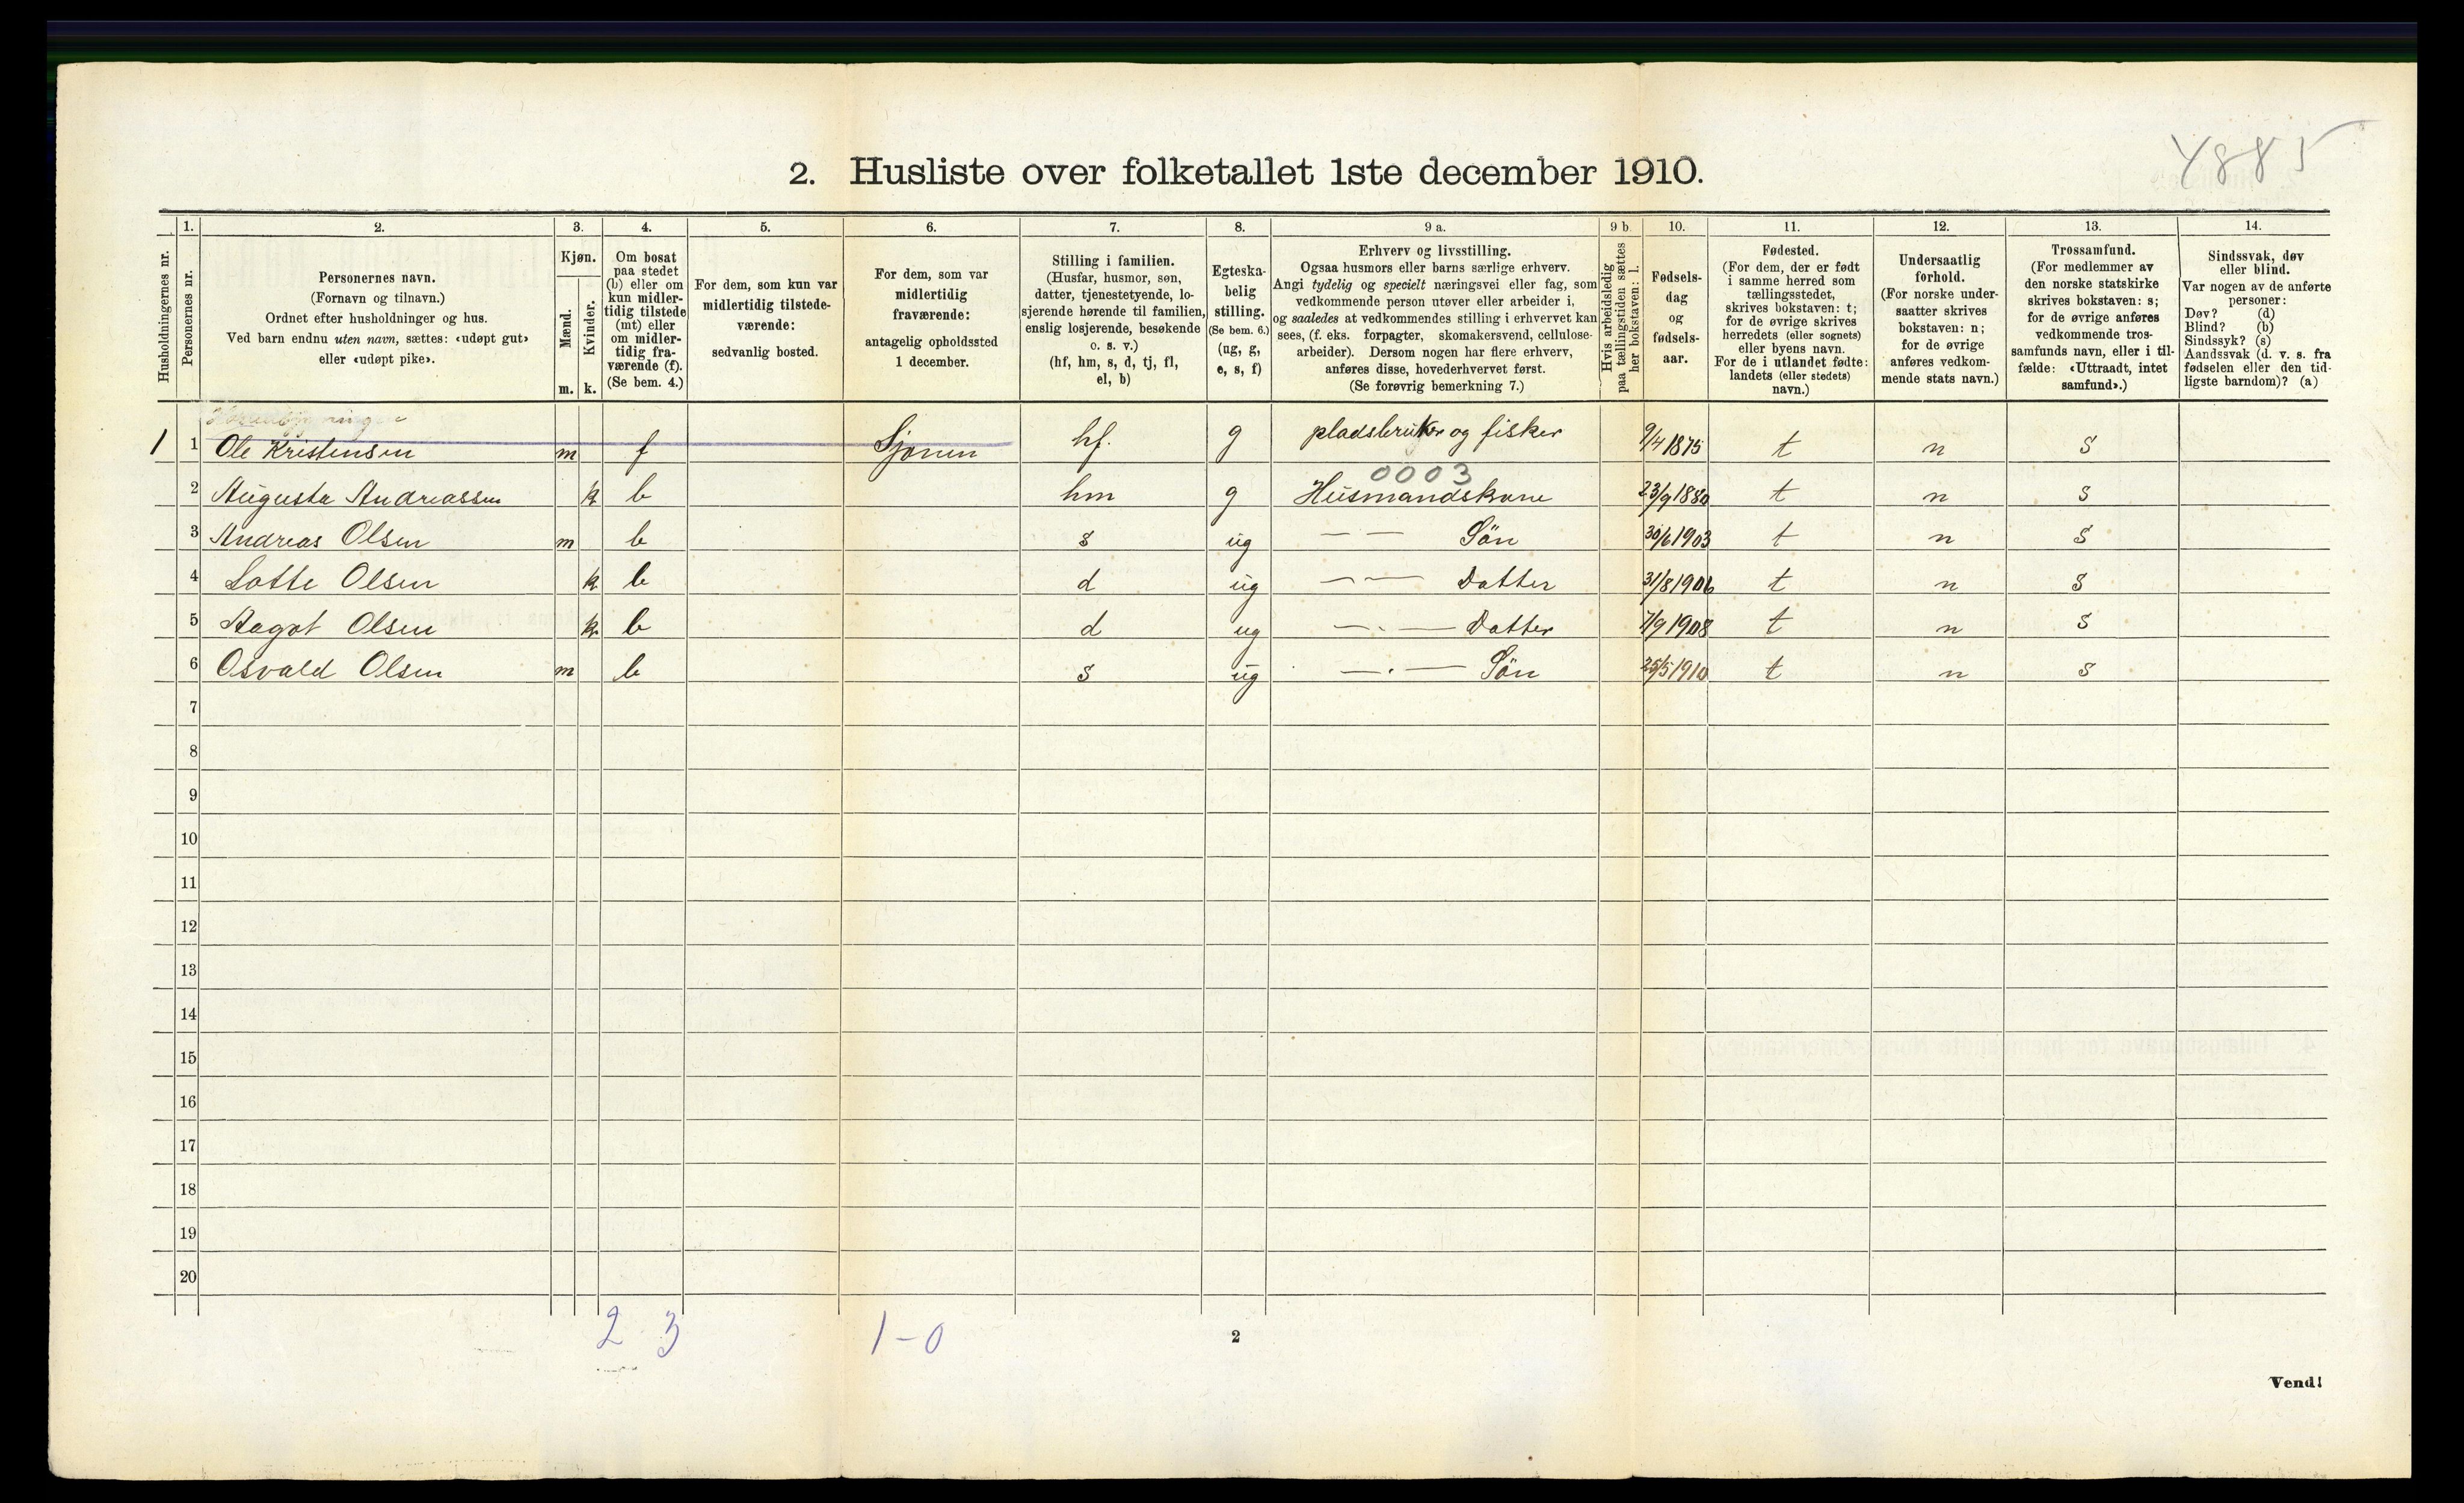 4885
2. Husliste over folketallet 1ste december 1910.
Husholdningernes nr.
1.
Personernes nr.
2.
Personernes navn.
(Fornavn og tilnavn.)
Ordnet efter husholdninger og hus.
Ved barn endnu uten navn, sættes: «udøpt gut»
eller «udøpt pike».
3.
Kjøn.
Mænd.
m.
Kvinder.
k.
4.
Om bosat
paa stedet
(b) eller om
kun midler-
tidig tilstede
(mt) eller
om midler-
tidig fra-
værende (f).
(Se bem. 4.)
5.
For dem, som kun var
midlertidig tilstede-
værende:
sedvanlig bosted.
6.
For dem, som var
midlertidig
fraværende:
antagelig opholdssted
1 december.
7.
Stilling i familien.
(Husfar, husmor, søn,
datter, tjenestetyende, lo-
sjerende hørende til familien,
enslig losjerende, besøkende
o. s. v.)
(hf, hm, s, d, tj, fl,
el, b)
8.
Egteska-
belig
stilling.
(Se bem. 6.)
(ug, g,
e, s, f)
9 a.
Erhverv og livsstilling.
Ogsaa husmors eller barns særlige erhverv.
Angi tydelig og specielt næringsvei eller fag, som
vedkommende person utøver eller arbeider i,
og saaledes at vedkommendes stilling i erhvervet kan
sees, (f. eks. forpagter, skomakersvend, cellulose-
arbeider). Dersom nogen har flere erhverv,
anføres disse, hovederhvervet først.
(Se forøvrig bemerkning 7.)
9 b.
Hvis arbeidsledig
paa tællingstiden sættes
her bokstaven: l.
10.
Fødsels-
dag
og
fødsels-
aar.
11.
Fødested.
(For dem, der er født
i samme herred som
tællingsstedet,
skrives bokstaven: t;
for de øvrige skrives
herredets (eller sognets)
eller byens navn.
For de i utlandet fødte:
landets (eller stedets)
navn.)
12.
Undersaatlig
forhold.
(For norske under-
saatter skrives
bokstaven: n;
for de øvrige
anføres vedkom-
mende stats navn.)
13.
Trossamfund.
(For medlemmer av
den norske statskirke
skrives bokstaven: s;
for de øvrige anføres
vedkommende tros-
samfunds navn, eller i til-
fælde: «Uttraadt, intet
samfund».)
14.
Sindssvak, døv
eller blind.
Var nogen av de anførte
personer:
Døv? (d)
Blind? (b)
Sindssyk? (s)
Aandssvak (d. v. s. fra
fødselen eller den tid-
ligste barndom)? (a)
1 1 Ole Kristensen m f Sjønen hf. g pladsbruker og fisker 9/4 1875 t n s
0003
2 Augusta Andreassen k b hm g Husmandskone 23/9 1880 t n s
3 Andreas Olsen m b s ug — — Sön 30/6 1903 t n s
4 Lotte Olsen k b d ug — — Datter 31/8 1906 t n s
5 Aagot Olsen k b d ug — . — Datter 7/9 1908 t n s
6 Osvald Olsen m b s ug — . — Sön 25/5 1910 t n s
7
8
9
10
11
12
13
14
15
16
17
18
19
20
2 3 1-0
2
Vend!